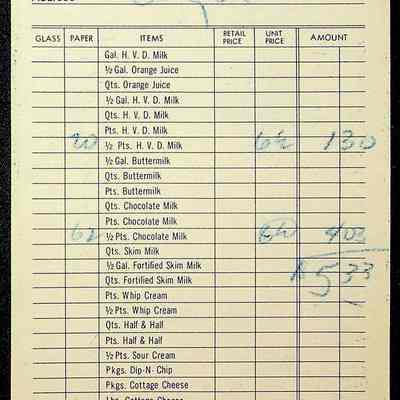 GLASS PAPER ITEMS RETAIL PRICE UNIT PRICE AMOUNT
Gal. H. V. D. Milk
½ Gal. Orange Juice
Qts. Orange Juice
½ Gal. H. V. D. Milk
Qts. H. V. D. Milk
Pts. H. V. D. Milk
20 ½ Pts. H. V. D. Milk 6½ 130
½ Gal. Buttermilk
Qts. Buttermilk
Pts. Buttermilk
Qts. Chocolate Milk
Pts. Chocolate Milk
62 ½ Pts. Chocolate Milk 6½ 403
Qts. Skim Milk
½ Gal. Fortified Skim Milk 533
Qts. Fortified Skim Milk
Pts. Whip Cream
½ Pts. Whip Cream
Qts. Half & Half
Pts. Half & Half
½ Pts. Sour Cream
Pkgs. Dip-N-Chip
Pkgs. Cottage Cheese
Lbs. Cottage Cheese